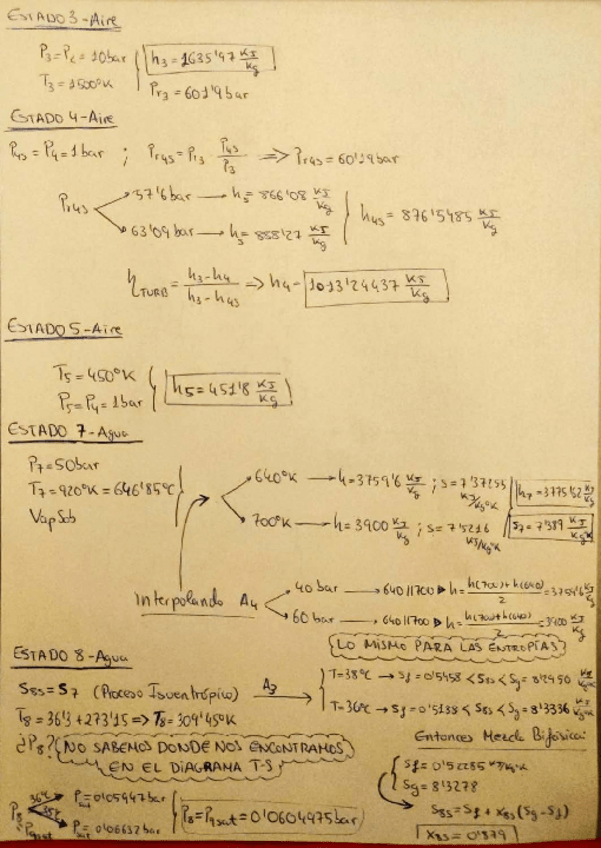 ESTADO 3-Aire
P3=Pc=10bar
T3=1500°K
h3=1635'97 KJ/Kg
Pr3=601'9bar
ESTADO 4-Aire
P4s=P4=1bar ; Pr4s=Pr3·P4s/P3 => Pr4s=60'19bar
Pr4s
57'6bar → hs=866'08 KJ/Kg
63'09bar → hs=888'27 KJ/Kg
h4s=876'5485 KJ/Kg
ηTURB=h3-h4/h3-h4s => h4=1013'24437 KJ/Kg
ESTADO 5-Aire
T5=450°K
P5=P4=1bar
h5=451'8 KJ/Kg
ESTADO 7-Agua
P7=50bar
T7=920°K=646'85°C
VapSob
640°K → h=3759'6 KJ/Kg ; s=7'37255 KJ/Kg°K
700°K → h=3900 KJ/Kg ; s=7'5216 KJ/Kg°K
h7=3775'62 KJ/Kg
S7=7'389 KJ/Kg°K
Interpolando A4
40 bar → 640||700 ▷ h=h(700)+h(640)/2=3759'6 KJ/Kg
60 bar → 640||700 ▷ h=h(700)+h(640)/2=3900 KJ/Kg
LO MISMO PARA LAS ENTROPÍAS
ESTADO 8-Agua
S8s=S7 (Proceso Isentrópico) A3
T=38°C → Sf=0'5458<S8s<Sg=8'2950 KJ/Kg°K
T=36°C → Sf=0'5188<S8s<Sg=8'3336 KJ/Kg°K
T8=36'3+273'15 => T8=309'45°K
¿P8? NO SABEMOS DONDE NOS ENCONTRAMOS
EN EL DIAGRAMA T-S
Entonces Mezcla Bifásica:
Sf=0'52285 KJ/Kg°K
Sg=8'3278
S8s=Sf+X8s(Sg-Sf)
X8s=0'879
P8=P9sat
36°C Psat=0'05947bar
38°C Psat=0'06632bar
P8=P9sat=0'0604975bar